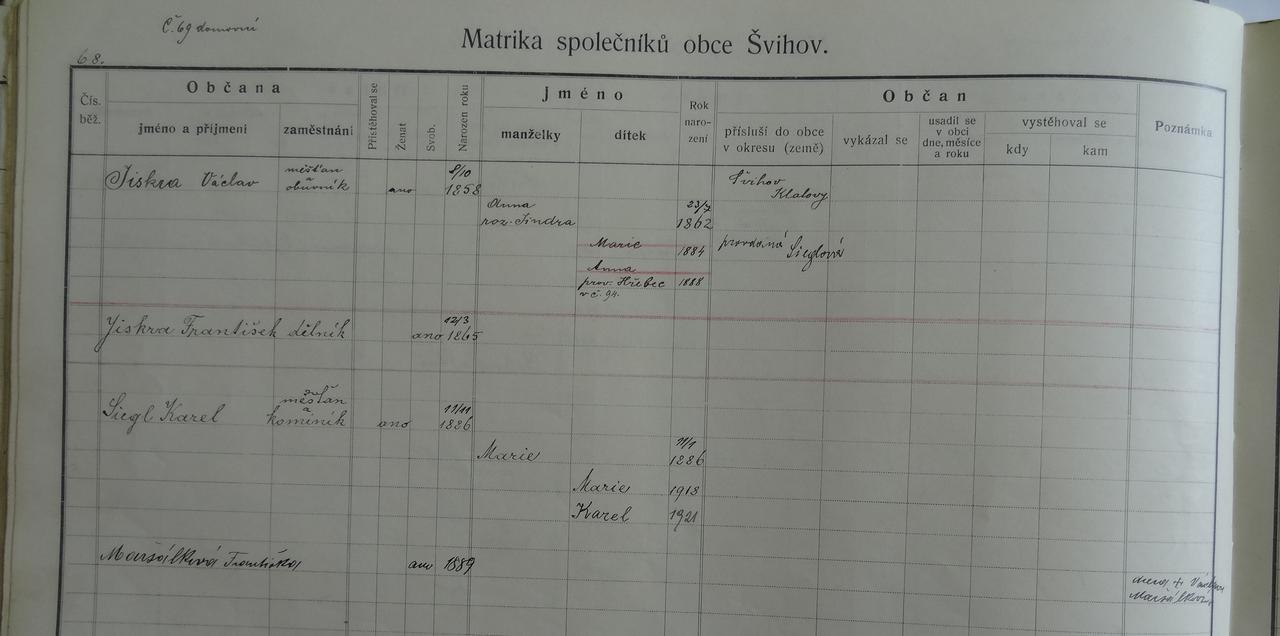 Č. 69 domovní
Matrika společníků obce Švihov.
68.
Čís. běž.
Občana
jméno a příjmení
zaměstnání
Přistěhoval se
Ženat
Svob.
Narozen roku
Jméno
manželky
dítek
Rok naro- zení
Občan
přísluší do obce v okresu (země)
vykázal se
usadil se v obci dne, měsíce a roku
vystěhoval se
kdy
kam
Poznámka
Jiskra Václav měšťan a obuvník ano 8/10 1858 Švihov Klatovy
Anna roz. Jindra 23/7 1862
Marie 1884 provdaná Sieglová
Anna prov. Hřebec v č. 94. 1888
Jiskra František dělník ano 12/3 1865
Siegl Karel měšťan a kominík ano 11/11 1886
Marie 11/1 1886
Marie 1913
Karel 1921
Maršálková Františka ano 1889